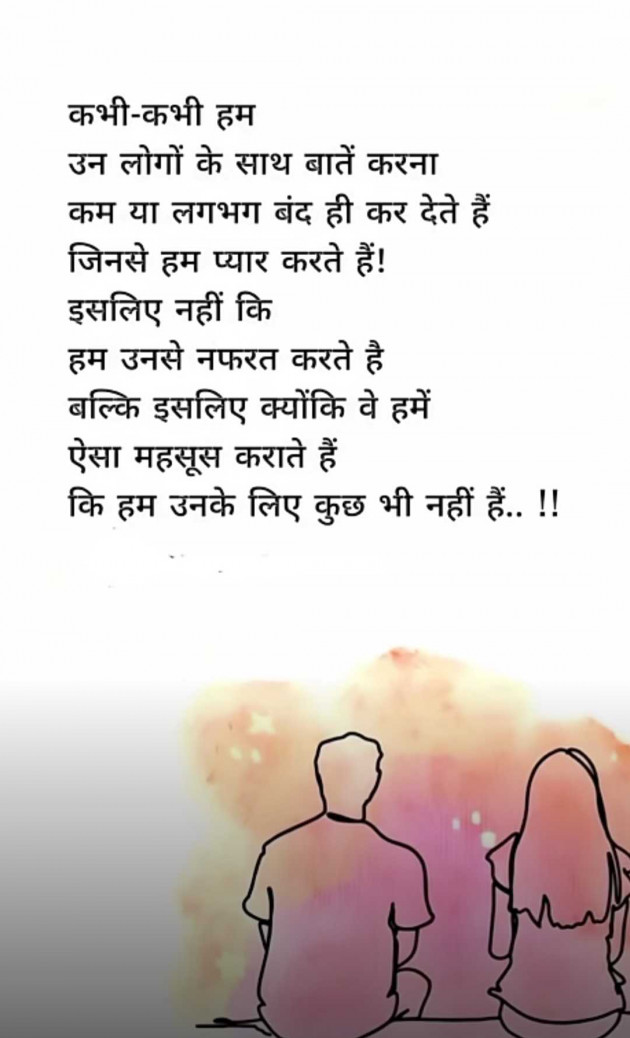 कभी-कभी हम
उन लोगों के साथ बातें करना
कम या लगभग बंद ही कर देते हैं
जिनसे हम प्यार करते हैं!
इसलिए नहीं कि
हम उनसे नफरत करते है
बल्कि इसलिए क्योंकि वे हमें
ऐसा महसूस कराते हैं
कि हम उनके लिए कुछ भी नहीं हैं.. !!